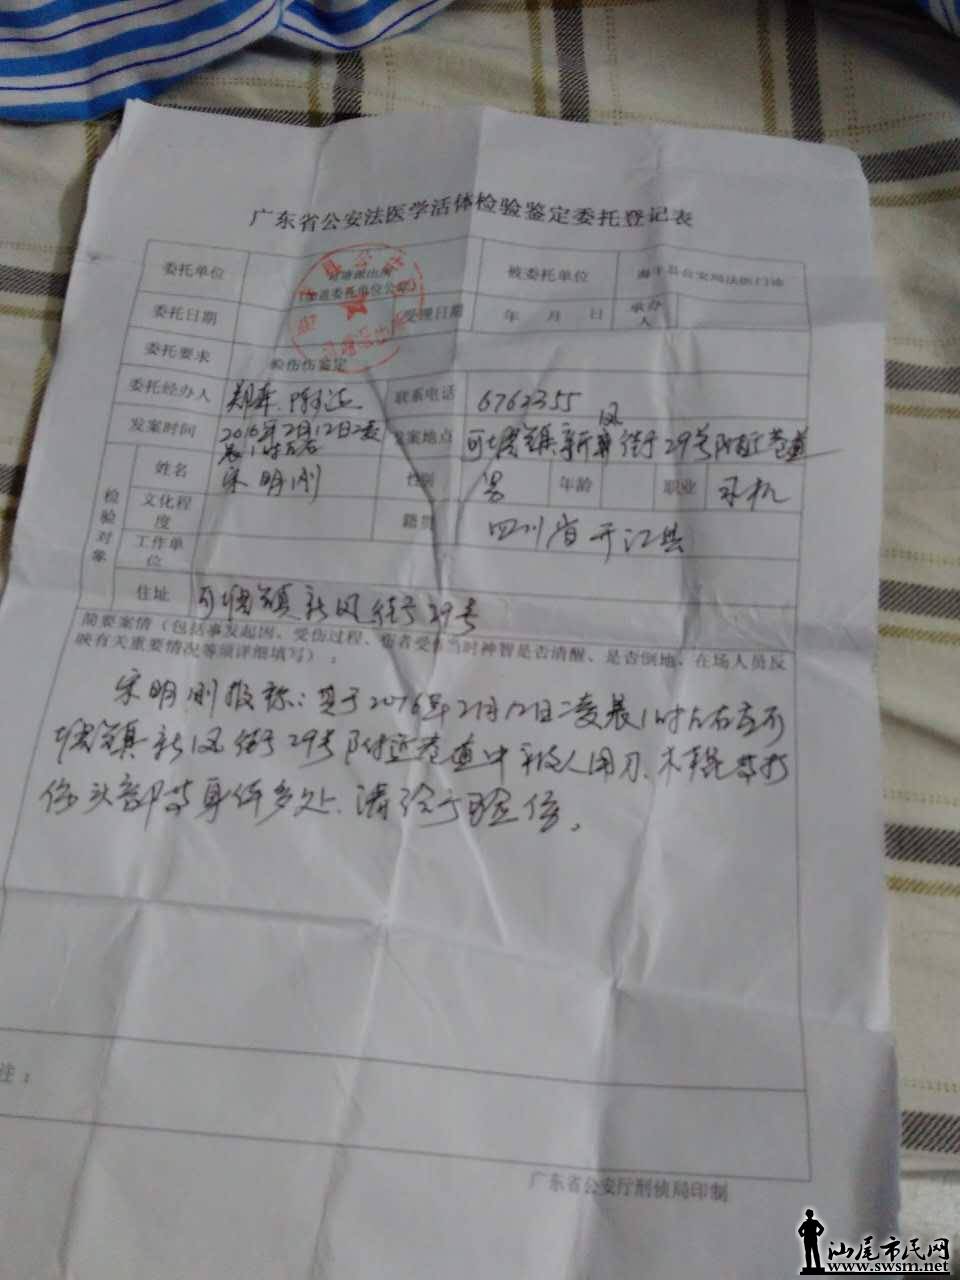 广东省公安法医学活体检验鉴定委托登记表
委托单位 可塘派出所 被委托单位 海丰县公安局法医门诊
(加盖委托单位公章)
委托日期 受理日期 年 月 日 承办人
委托要求 检伤伤鉴定
委托经办人 联系电话 6762355
发案时间 2016年2月12日凌晨1时左右 发案地点 可塘镇新风街29号附近巷道
检验对象
姓名 宋明刚 性别 男 年龄 职业 司机
文化程度 籍贯 四川省开江县
工作单位
住址 可塘镇新风街29号
简要案情(包括事发起因、受伤过程、伤者受伤当时神智是否清醒、是否倒地、在场人员反
映有关重要情况等须详细填写):
宋明刚报称:其于2016年2月12日凌晨1时左右在可
塘镇新风街29号附近巷道中被人用刀、木棍等打
伤头部等身体多处,请给予验伤。
注:
广东省公安厅刑侦局印制
汕尾市民网
www.swsm.net